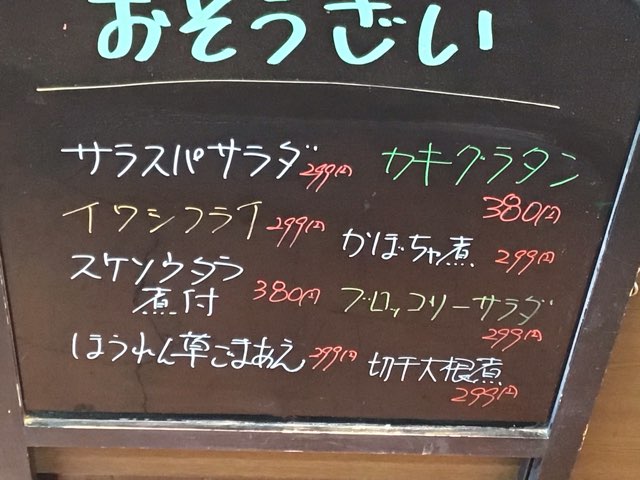 おそうざい
サラスパサラダ 299円
イワシフライ 299円
スケソウダラ
煮付 380円
ほうれん草ごまあえ 299円
カキグラタン
380円
かぼちゃ煮 299円
ブロッコリーサラダ
299円
切干大根煮
299円